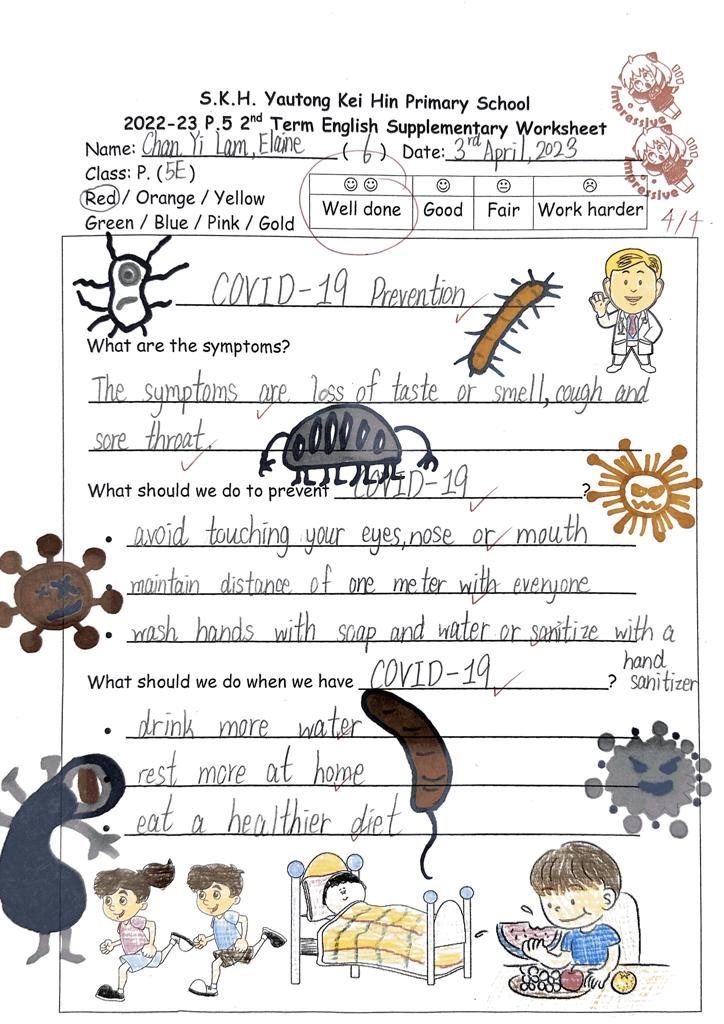 Impressive
Impressive
S.K.H. Yautong Kei Hin Primary School
2022-23 P.5 2nd Term English Supplementary Worksheet
Name: Chan Yi Lam, Elaine (6) Date: 3rd April, 2023
Class: P. (5E)
Red / Orange / Yellow
Green / Blue / Pink / Gold
Well done Good Fair Work harder
4/4
COVID-19 Prevention
What are the symptoms?
The symptoms are loss of taste or smell, cough and
sore throat.
What should we do to prevent COVID-19 ?
• avoid touching your eyes, nose or mouth
• maintain distance of one meter with everyone
• wash hands with soap and water or sanitize with a
hand
sanitizer
What should we do when we have COVID-19 ?
• drink more water
• rest more at home
• eat a healthier diet